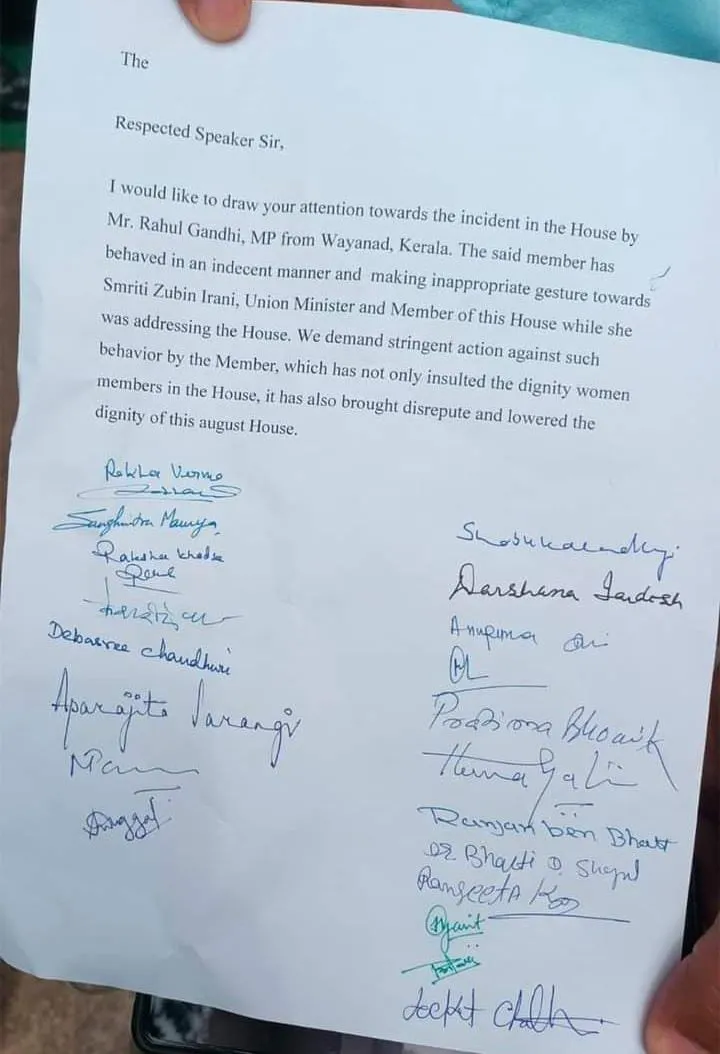 The
Respected Speaker Sir,
I would like to draw your attention towards the incident in the House by
Mr. Rahul Gandhi, MP from Wayanad, Kerala. The said member has
behaved in an indecent manner and making inappropriate gesture towards
Smriti Zubin Irani, Union Minister and Member of this House while she
was addressing the House. We demand stringent action against such
behavior by the Member, which has not only insulted the dignity women
members in the House, it has also brought disrepute and lowered the
dignity of this august House.
Rekha Verma
Sanghmitra Maurya
Raksha Khadse
Debasree Chaudhuri
Aparajita Sarangi
Darshana Jardosh
Anupriya
Pratima Bhoumik
Hema Mali
Ranjan ben Bhatt
Dr Bharti D. Shyal
Rangeeta
Locket Chatt